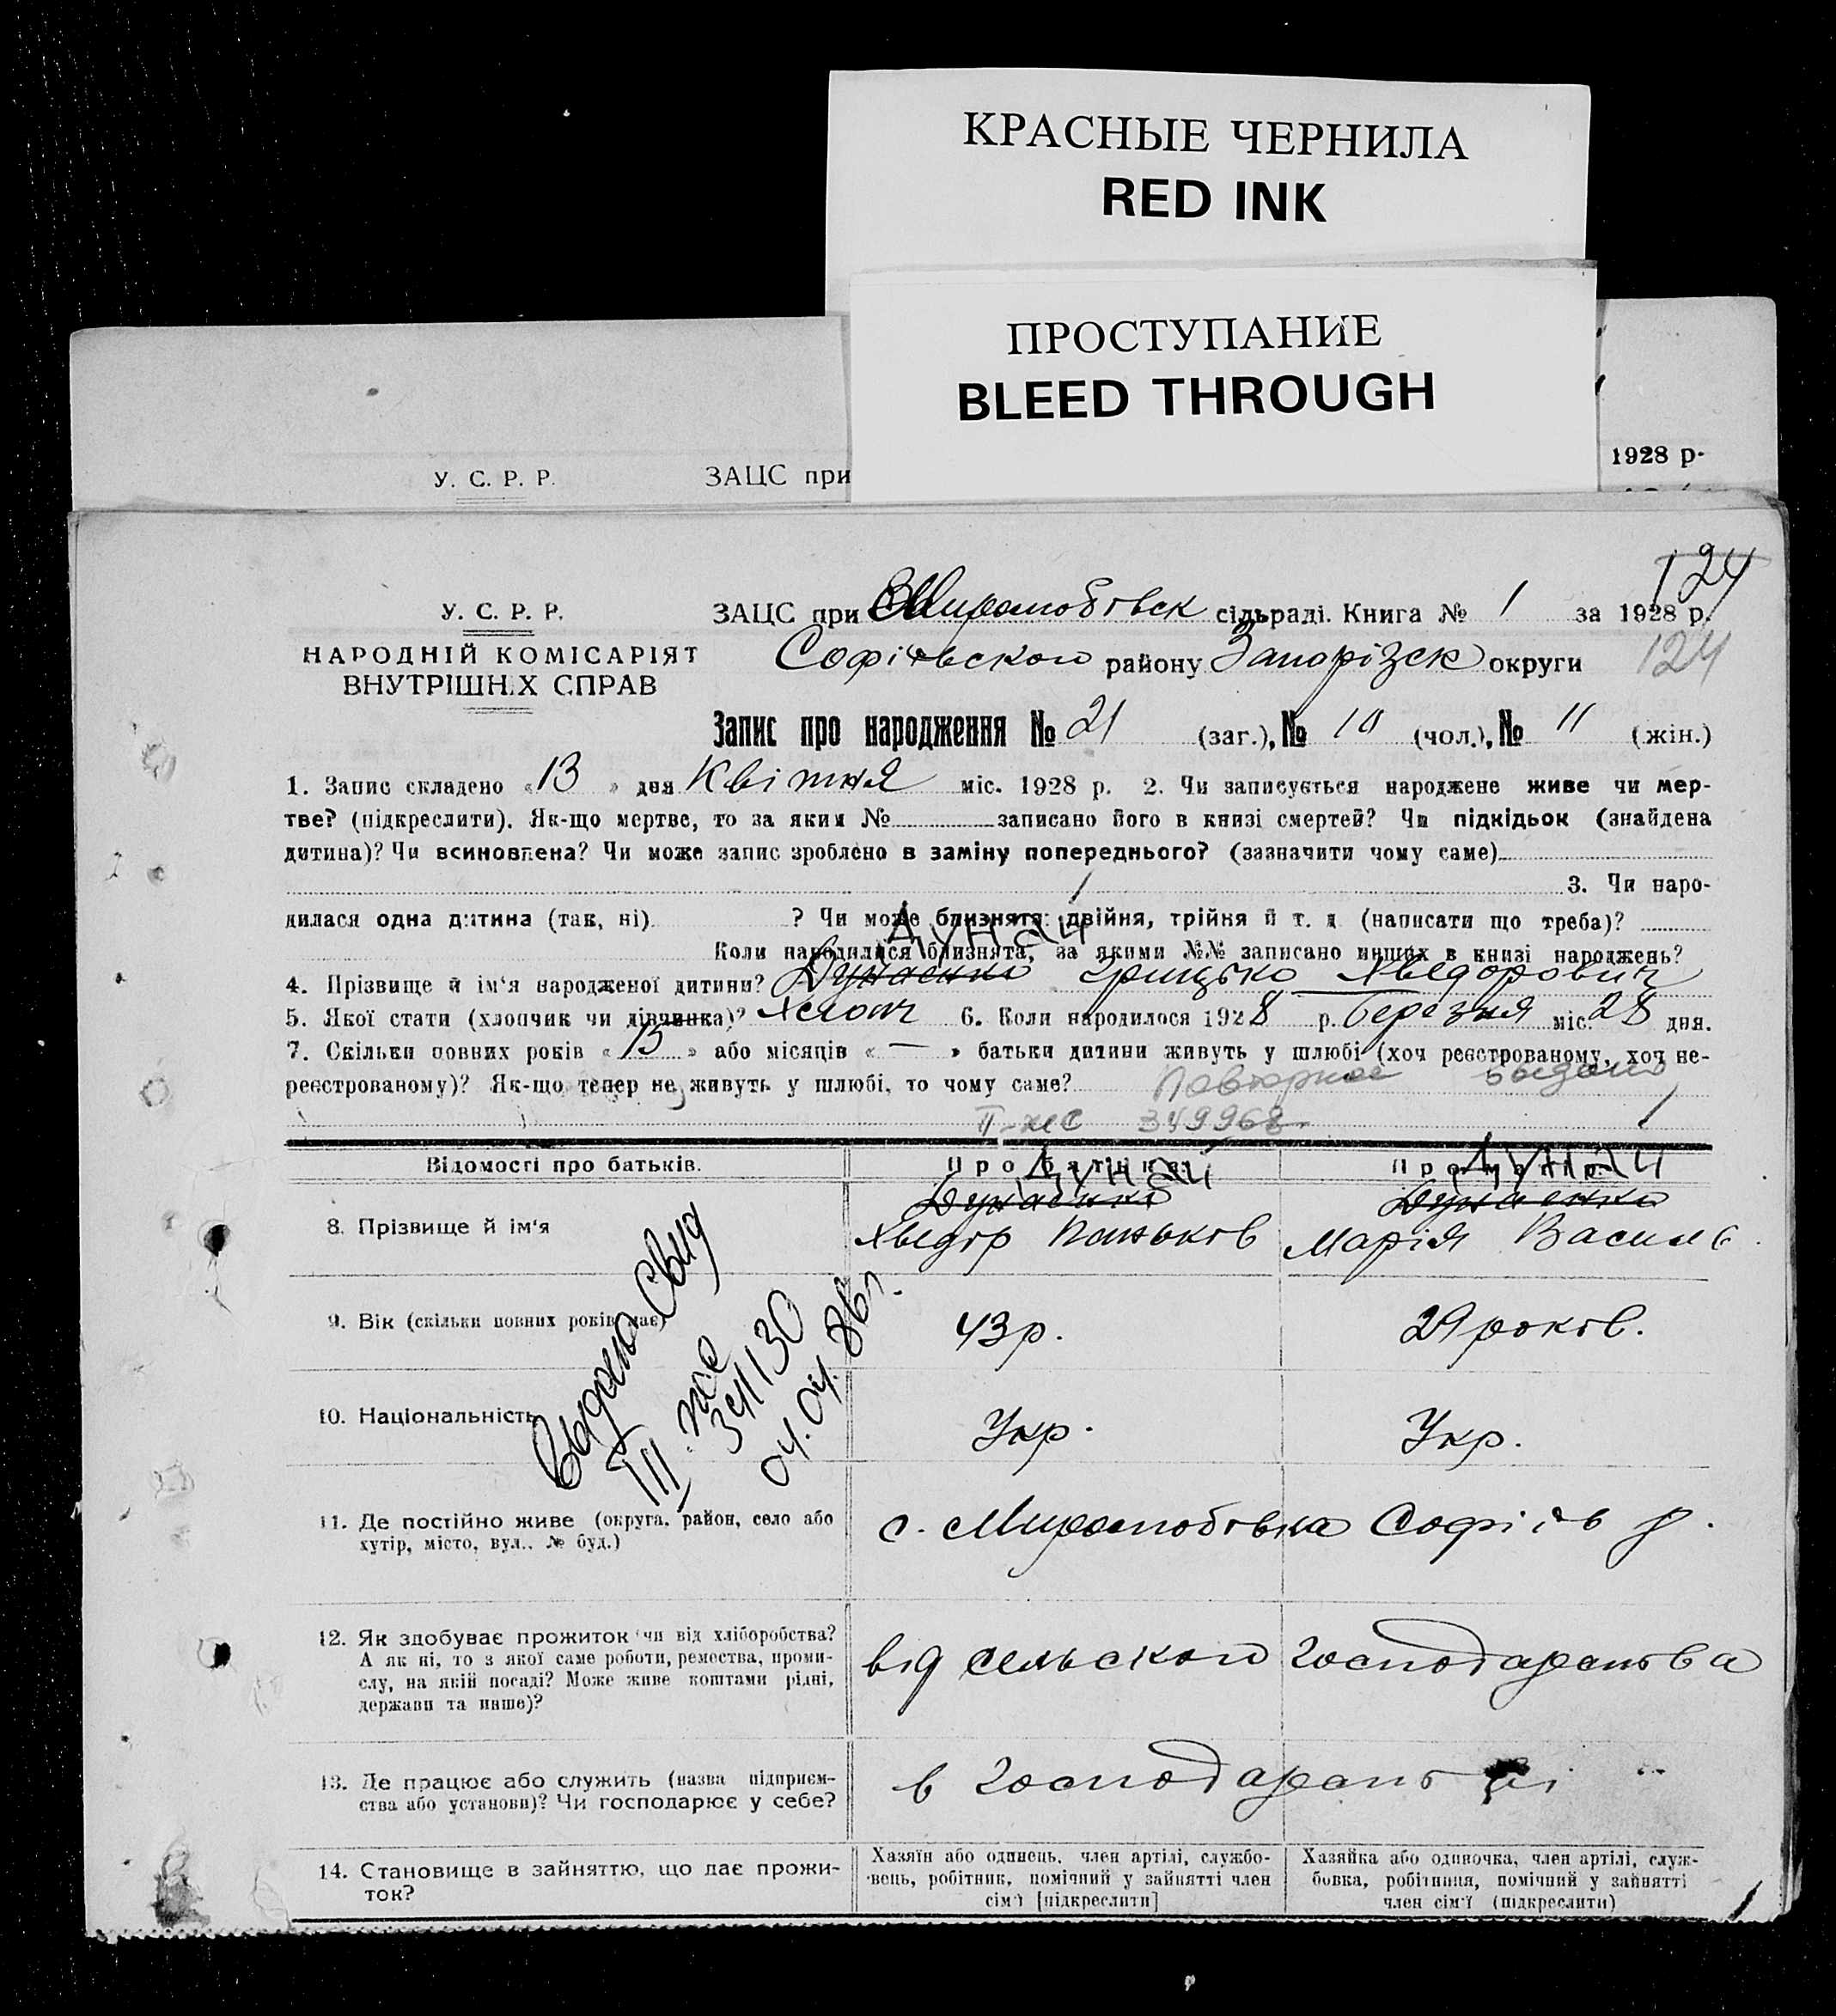 КРАСНЫЕ ЧЕРНИЛА
RED INK
ПРОСТУПАНИЕ
BLEED THROUGH
У. С. Р. Р. ЗАЦС при 1928 р.
124
У. С. Р. Р. ЗАЦС при сільраді. Книга № 1 за 1928 р.
НАРОДНІЙ КОМІСАРІЯТ району Запорізск округи 124
ВНУТРІШНІХ СПРАВ
Запис про народження № 21 (заг.), № 10 (чол.), № 11 (жін.)
1. Запис складено « 13 » дня Квітня міс. 1928 р. 2. Чи записується народжене живе чи мер-
тве? (підкреслити). Як-що мертве, то за яким № записано його в книзі смертей? Чи підкідьок (знайдена
дитина)? Чи всиновлена? Чи може запис зроблено в заміну попереднього? (зазначити чому саме)
3. Чи наро-
дилася одна дитина (так, ні) ? Чи може близнята: двійня, трійня й т. д. (написати що треба)?
Дунай
Коли народилися близнята, за якими №№ записано инших в книзі народжень?
4. Прізвище й ім'я народженої дитини? Дунаенко Грицько Хведорович
5. Якої стати (хлопчик чи дівчинка)? Хлопч 6. Коли народилося 1928 р. березня міс. 28 дня.
7. Скільки повних років « 13 » або місяців « — » батьки дитини живуть у шлюбі (хоч реєстрованому, хоч не-
реєстрованому)? Як-що тепер не живуть у шлюбі, то чому саме? Повторное выдано
349968
Відомості про батьків. Про батька Про матір
Дунай Дунай
Дунаенко Дунаенко
8. Прізвище й ім'я Хведір Паньков Марія Василь
9. Вік (скільки повних років має) 43 р. 29 років.
10. Національність Укр. Укр.
Выдано Свид
III
341130
04.04.86 г.
11. Де постійно живе (округа, район, село або
хутір, місто, вул., № буд.)
с. Софіів р.
12. Як здобуває прожиток чи від хліборобства?
А як ні, то з якої саме роботи, ремества, проми-
слу, на якій посаді? Може живе коштами рідні,
держави та инше)?
від сельского господарства
13. Де працює або служить (назва підприєм-
ства або установи)? Чи господарює у себе?
в господарстві
14. Становище в зайняттю, що дає прожи-
ток?
Хазяїн або одинець, член артілі, службо-
вець, робітник, помічний у зайнятті член
сім'ї [підкреслити]
Хазяйка або одиночка, член артілі, служ-
бовка, робітниця, помічний у зайнятті
член сім'ї (підкреслити)